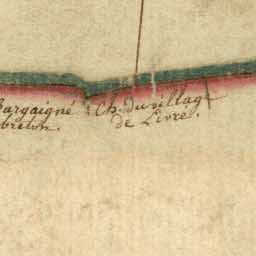 Bargaigné
breton.
Ch. du village
de Livré.